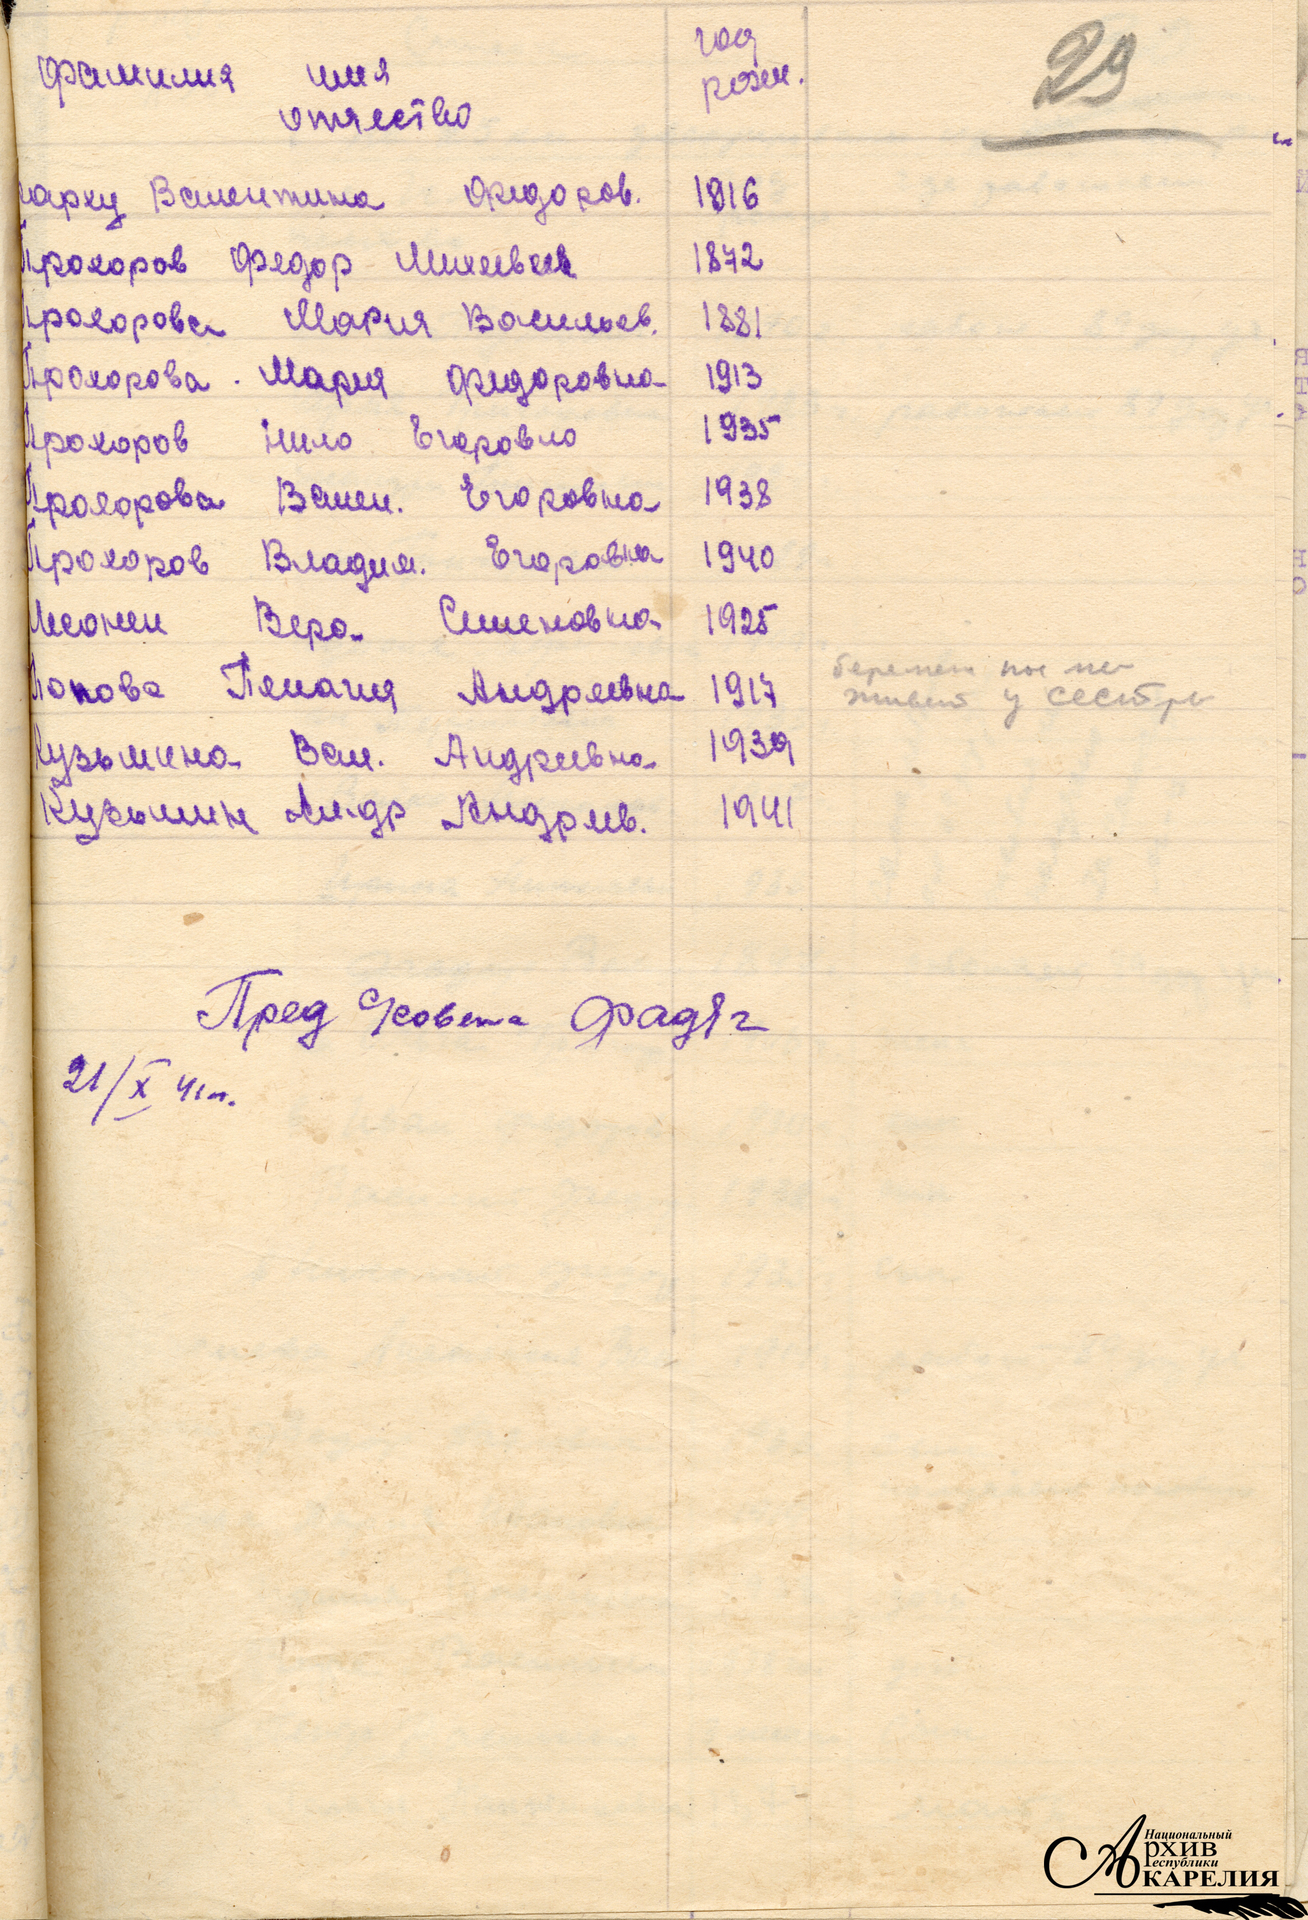 фамилия имя отчество
год рожд.
29
Валентина Федоров. 1916
Прохоров Федор Михеевич 1872
Прохорова Мария Васильев. 1881
Прохорова Мария Федоровна 1913
Прохоров Нило Егоровна 1935
Прохорова Вален. Егоровна 1938
Прохоров Владим. Егоровна 1940
Вера Семеновна 1925
Попова Пелагия Андреевна 1917
живет у сестры
Кузьмина Вал. Андреевна 1939
Кузьмин Ал-др Андреев. 1941
Пред с/совета
21/X 41г.
Национальный
Архив
Республики
КАРЕЛИЯ